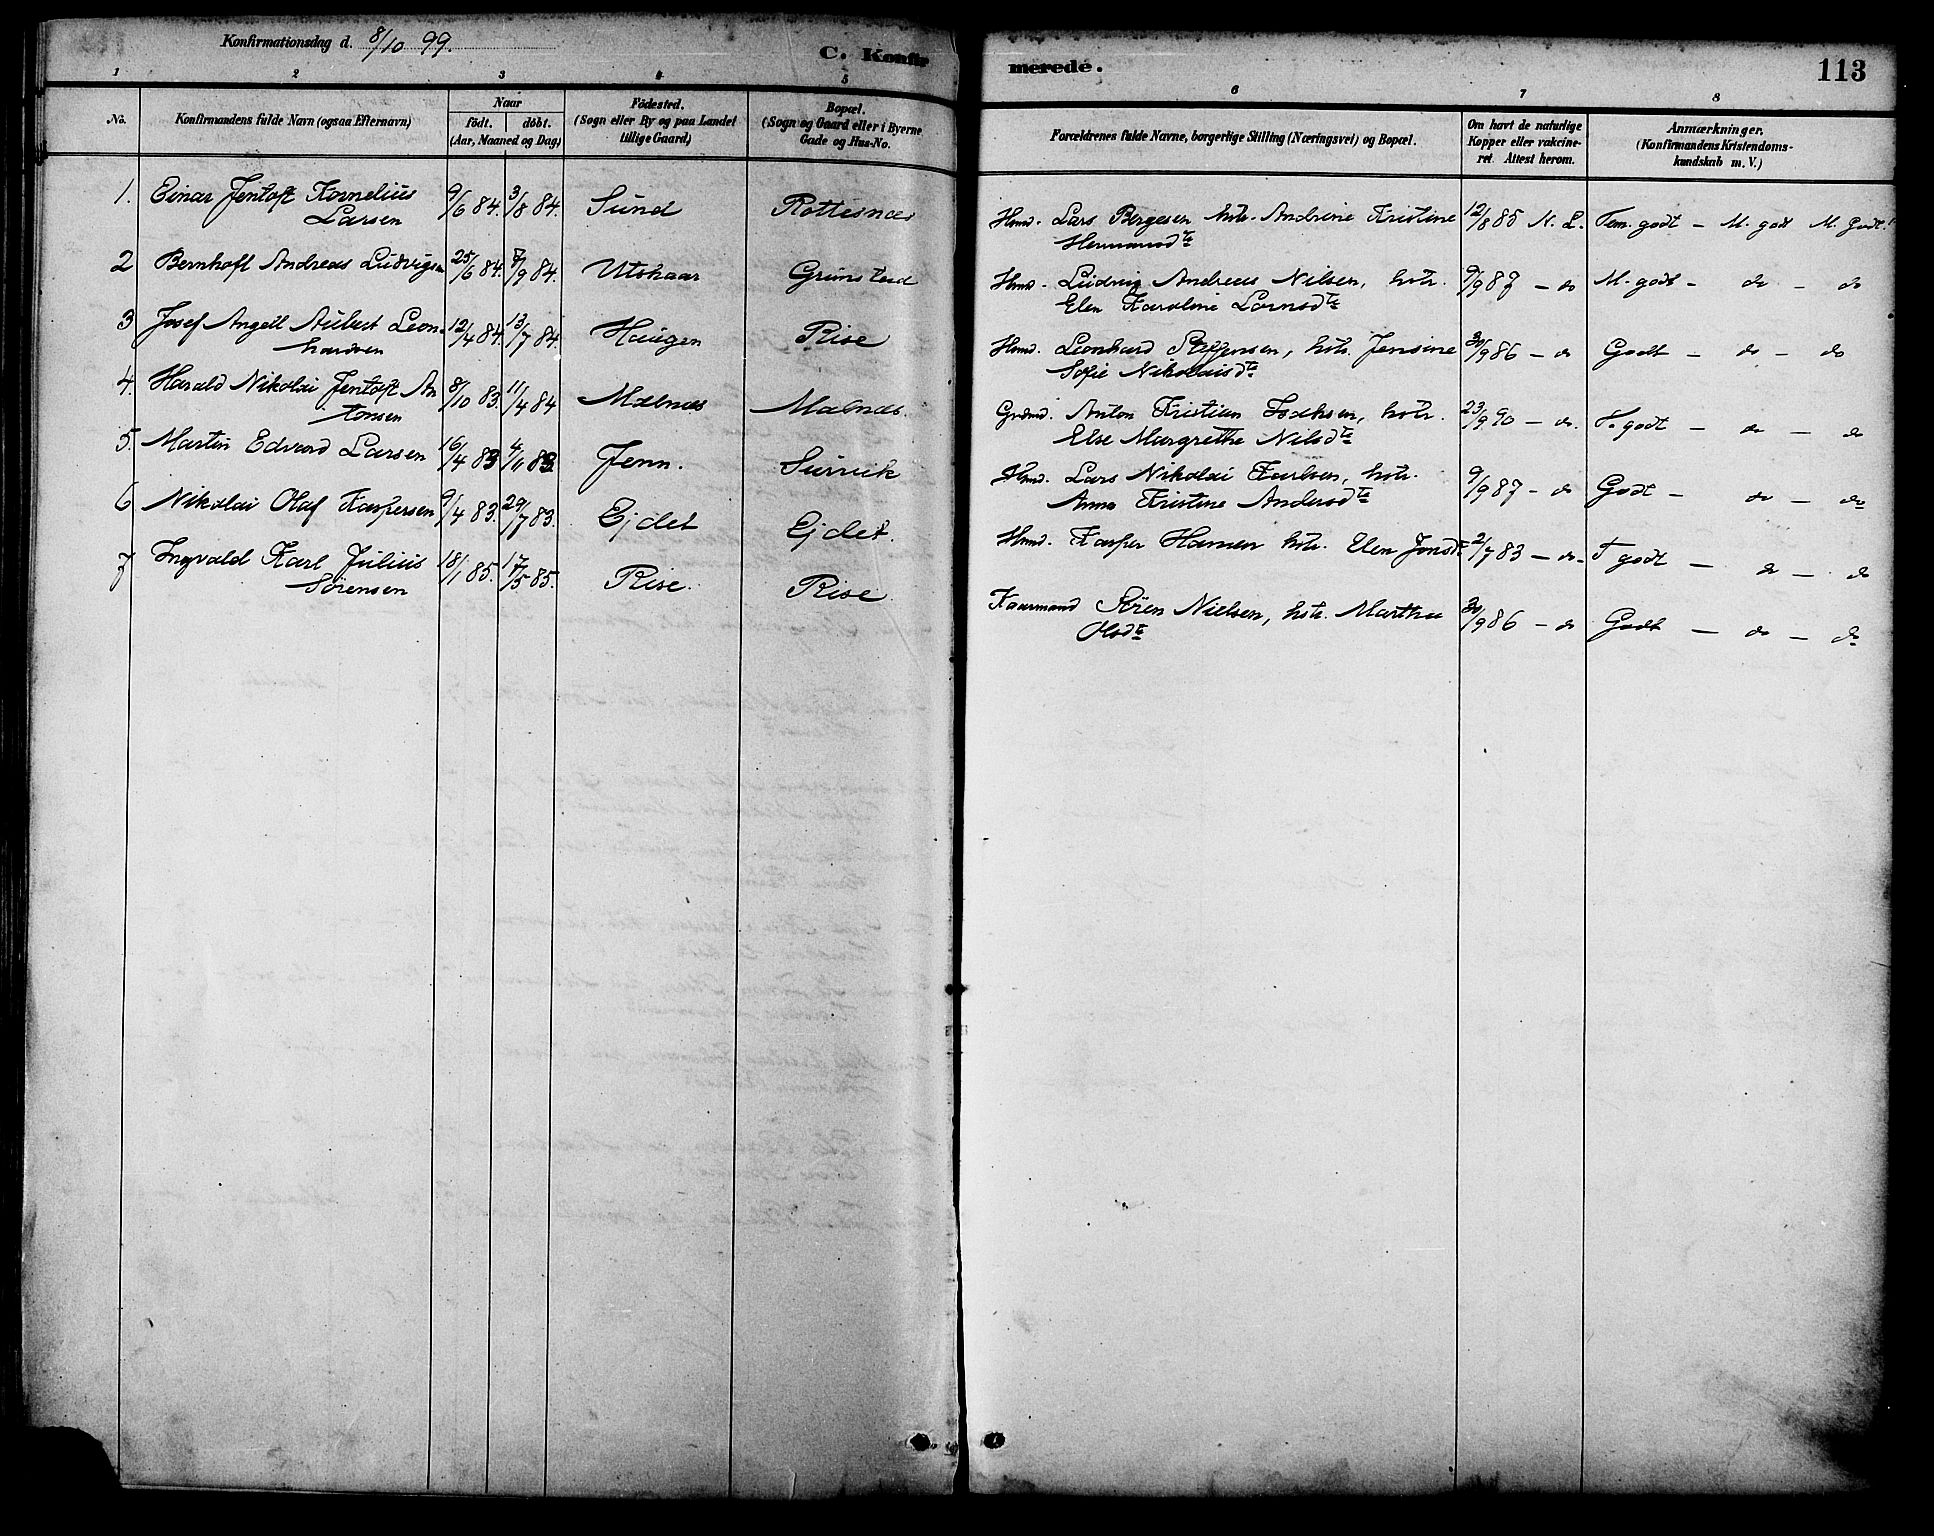 Konfirmationsdag d. 8/10 99.
C. Konfirmerede.
113
1 2 3 4 5 6 7 8
No.
Konfirmandens fulde Navn (ogsaa Efternavn)
Naar
födt. döbt.
(Aar, Maaned og Dag.)
Födested.
(Sogn eller By og paa Landet
tillige Gaard.)
Bopæl.
(Sogn og Gaard eller i Byerne
Gade og Hus-No.
Forældrenes fulde Navne, borgerlige Stilling (Næringsvei) og Bopæl.
Om havt de naturlige
Kopper eller vakcine-
ret. Attest herom.
Anmærkninger.
(Konfirmandens Kristendoms-
kundskab m. V.)
1. Einar Jentoft Kornelius 9/6 84. 3/8 84. Sund Rottesnæs Hmd. Lars Bergesen hstr. Andrine Kristine 12/8 85 N. L. Tem. godt - M. godt M. Godt.
Larsen Hermansdtr
2 Bernhoft Andreas Ludvigsen 25/6 84. 7/9 84. Utskaar Grimstad Hmd. Ludvig Andreas Nilsen, hstr. 9/9 87 - do M. godt - do - do
Elen Karoline Larnsdtr
3 Josef Angell Aubert Leon- 12/4 84. 13/7 84. Haugen Rise Hmd. Leonhard Steffensen, hstr. Jensine 30/9 86 - do Godt - do - do
hardsen Sofie Nikolaisdtr
4. Harald Nikolai Jentoft An 8/10 83. 11/4 84 Malnæs Malnæs. Grdmd. Anton Kristian Isaksen, hstr. 23/9 90 - do. T. godt - do - do
tonsen Else Margrethe Nilsdtr
5. Martin Edvard Larsen 16/4 83 4/11 83. Jenn. Survik Hmd. Lars Nikolai Karlsen, hstr. 9/9 87 - do Godt - do - do
Anna Kristine Andersdtr
6 Nikolai Olaf Kaspersen 9/4 83. 29/7 83. Ejdet Ejdet. Hmd. Kasper Hansen hstr. Elen Jonsdtr 2/7 83 - do - T godt - do - do
7 Ingvald Karl Julius 18/1 85. 17/5 85. Rise. Rise. Kaarmand Sören Nielsen, hstr. Marthea 30/9 86 - do Godt - do - do
Sörensen Olsdtr